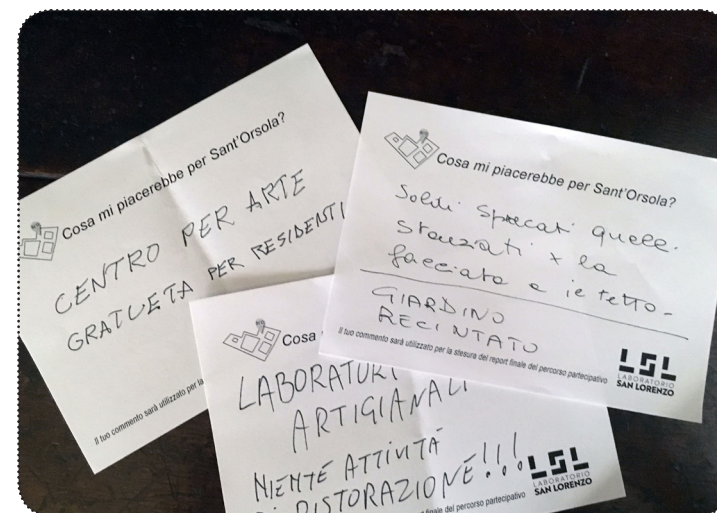 Cosa mi piacerebbe per Sant'Orsola?
CENTRO PER ARTE
GRATUITA PER RESIDENTI
Il tuo commento sarà utilizzato per la
Cosa mi piacerebbe per Sant'Orsola?
Soldi sprecati quelli
stanziati x la
facciata e il tetto-
GIARDINO
RECINTATO
Il tuo commento sarà utilizzato per la stesura del report finale del percorso partecipativo
LSL
LABORATORIO
SAN LORENZO
Cosa
LABORATORI
ARTIGIANALI
NIENTE ATTIVITÀ
DI RISTORAZIONE!!!
finale del percorso partecipativo
LSL
LABORATORIO
SAN LORENZO